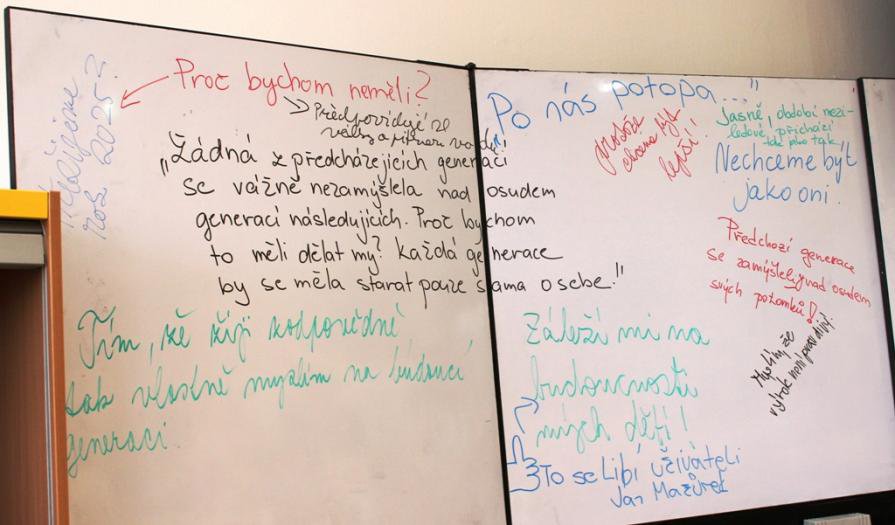 Přežijeme
rok 2025?
Proč bychom neměli?
Předpovídají se
války a přísun vody!
„Žádná z předcházejících generací
se vážně nezamýšlela nad osudem
generací následujících. Proč bychom
to měli dělat my? Každá generace
by se měla starat pouze sama o sebe."
Tím, že žiji zodpovědně
tak vlastně myslím na budoucí
generaci.
Po nás potopa..."
protože
chceme být
lepší!
Jasně, období nezi-
ledové, přichází
tak jako tak
Nechceme být
jako oni.
Předchozí generace
se zamýšlely nad osudem
svých potomků!
Myslím, že
výrok není pravdivý.
Záleží mi na
budoucnosti
mých dětí!
To se libí uživateli
Jan Mazůrek